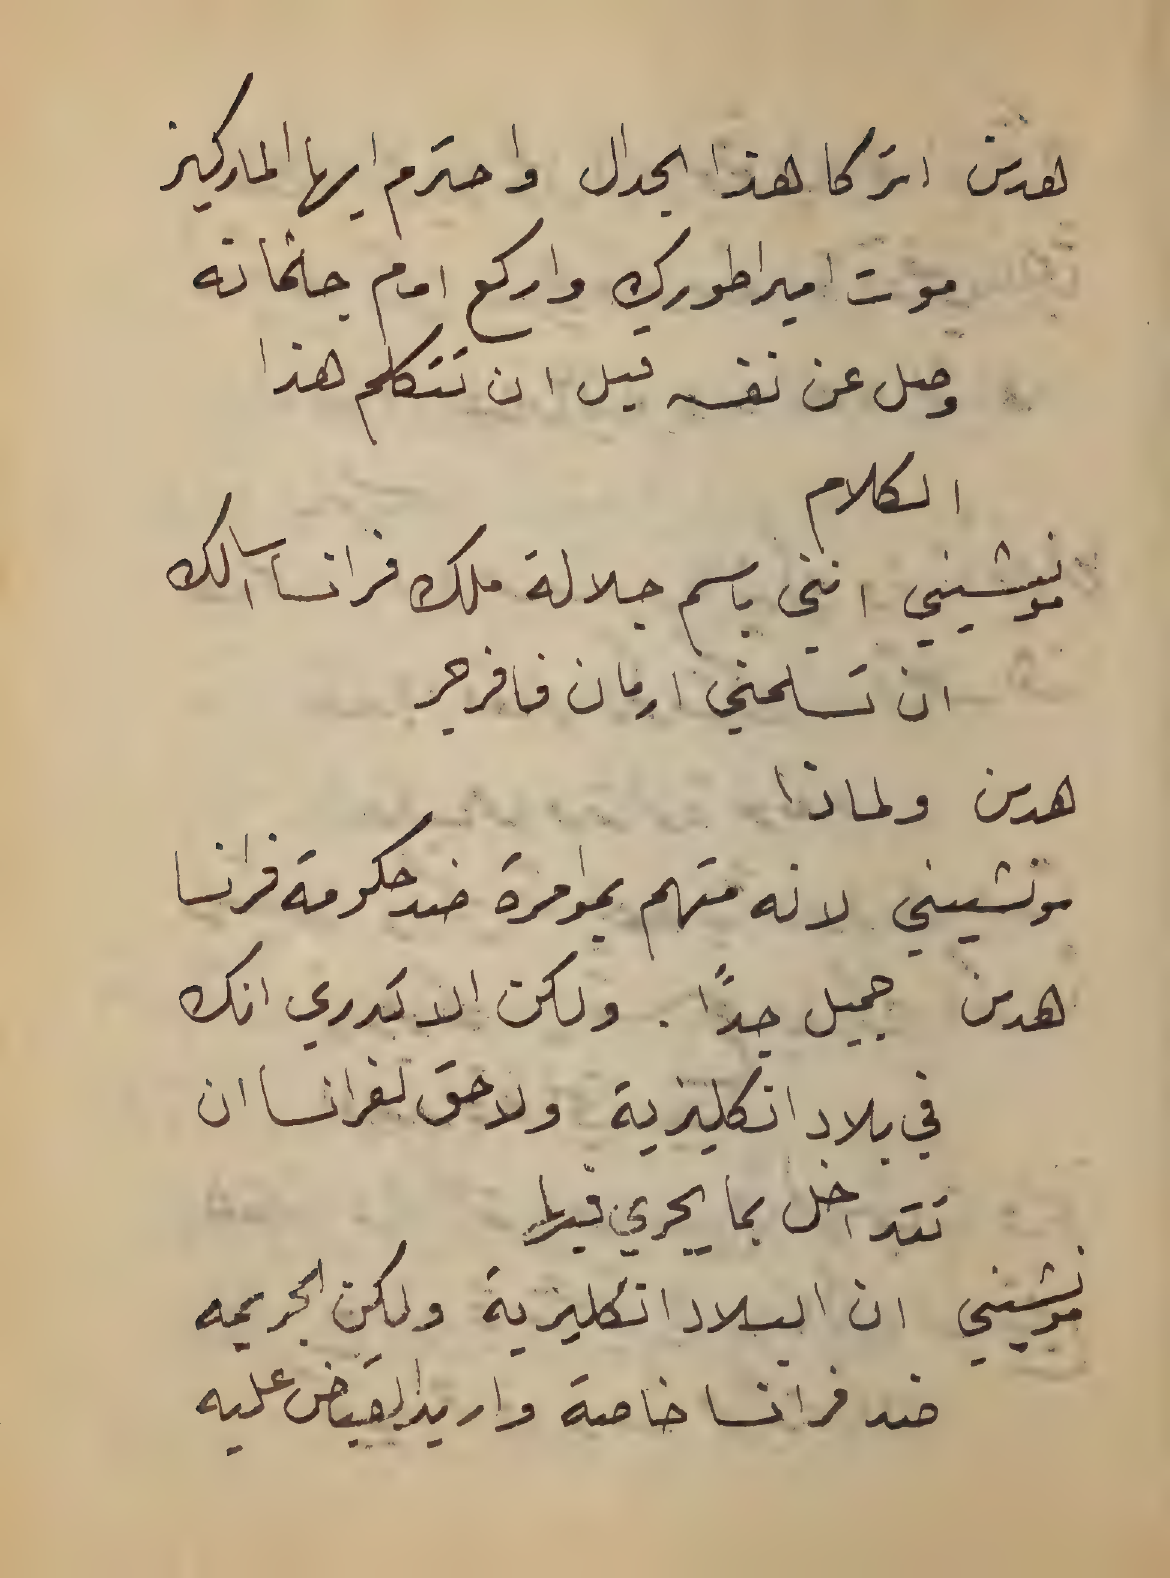 هدسن اتركا هذا الجدال واحترم ايها الماركيز
موت امبراطورك واركع امام جثمانه
وصل عن نفسه قبل ان تتكلم هذا
الكلام
مونتشيني انني باسم جلالة ملك فرانسا اسالك
ان تسلمني ارمان فافرجر
هدسن ولماذا
مونتشيني لانه متهم بموامرة ضد حكومة فرانسا
هدسن جميل جدًا . ولكن الا تدري انك
في بلاد انكليزية ولا حق لفرانسا ان
تتداخل بما يجري فيها
مونتشيني ان البلاد انكليزية ولكن الجريمه
ضد فرانسا خاصة واريد القبض عليه